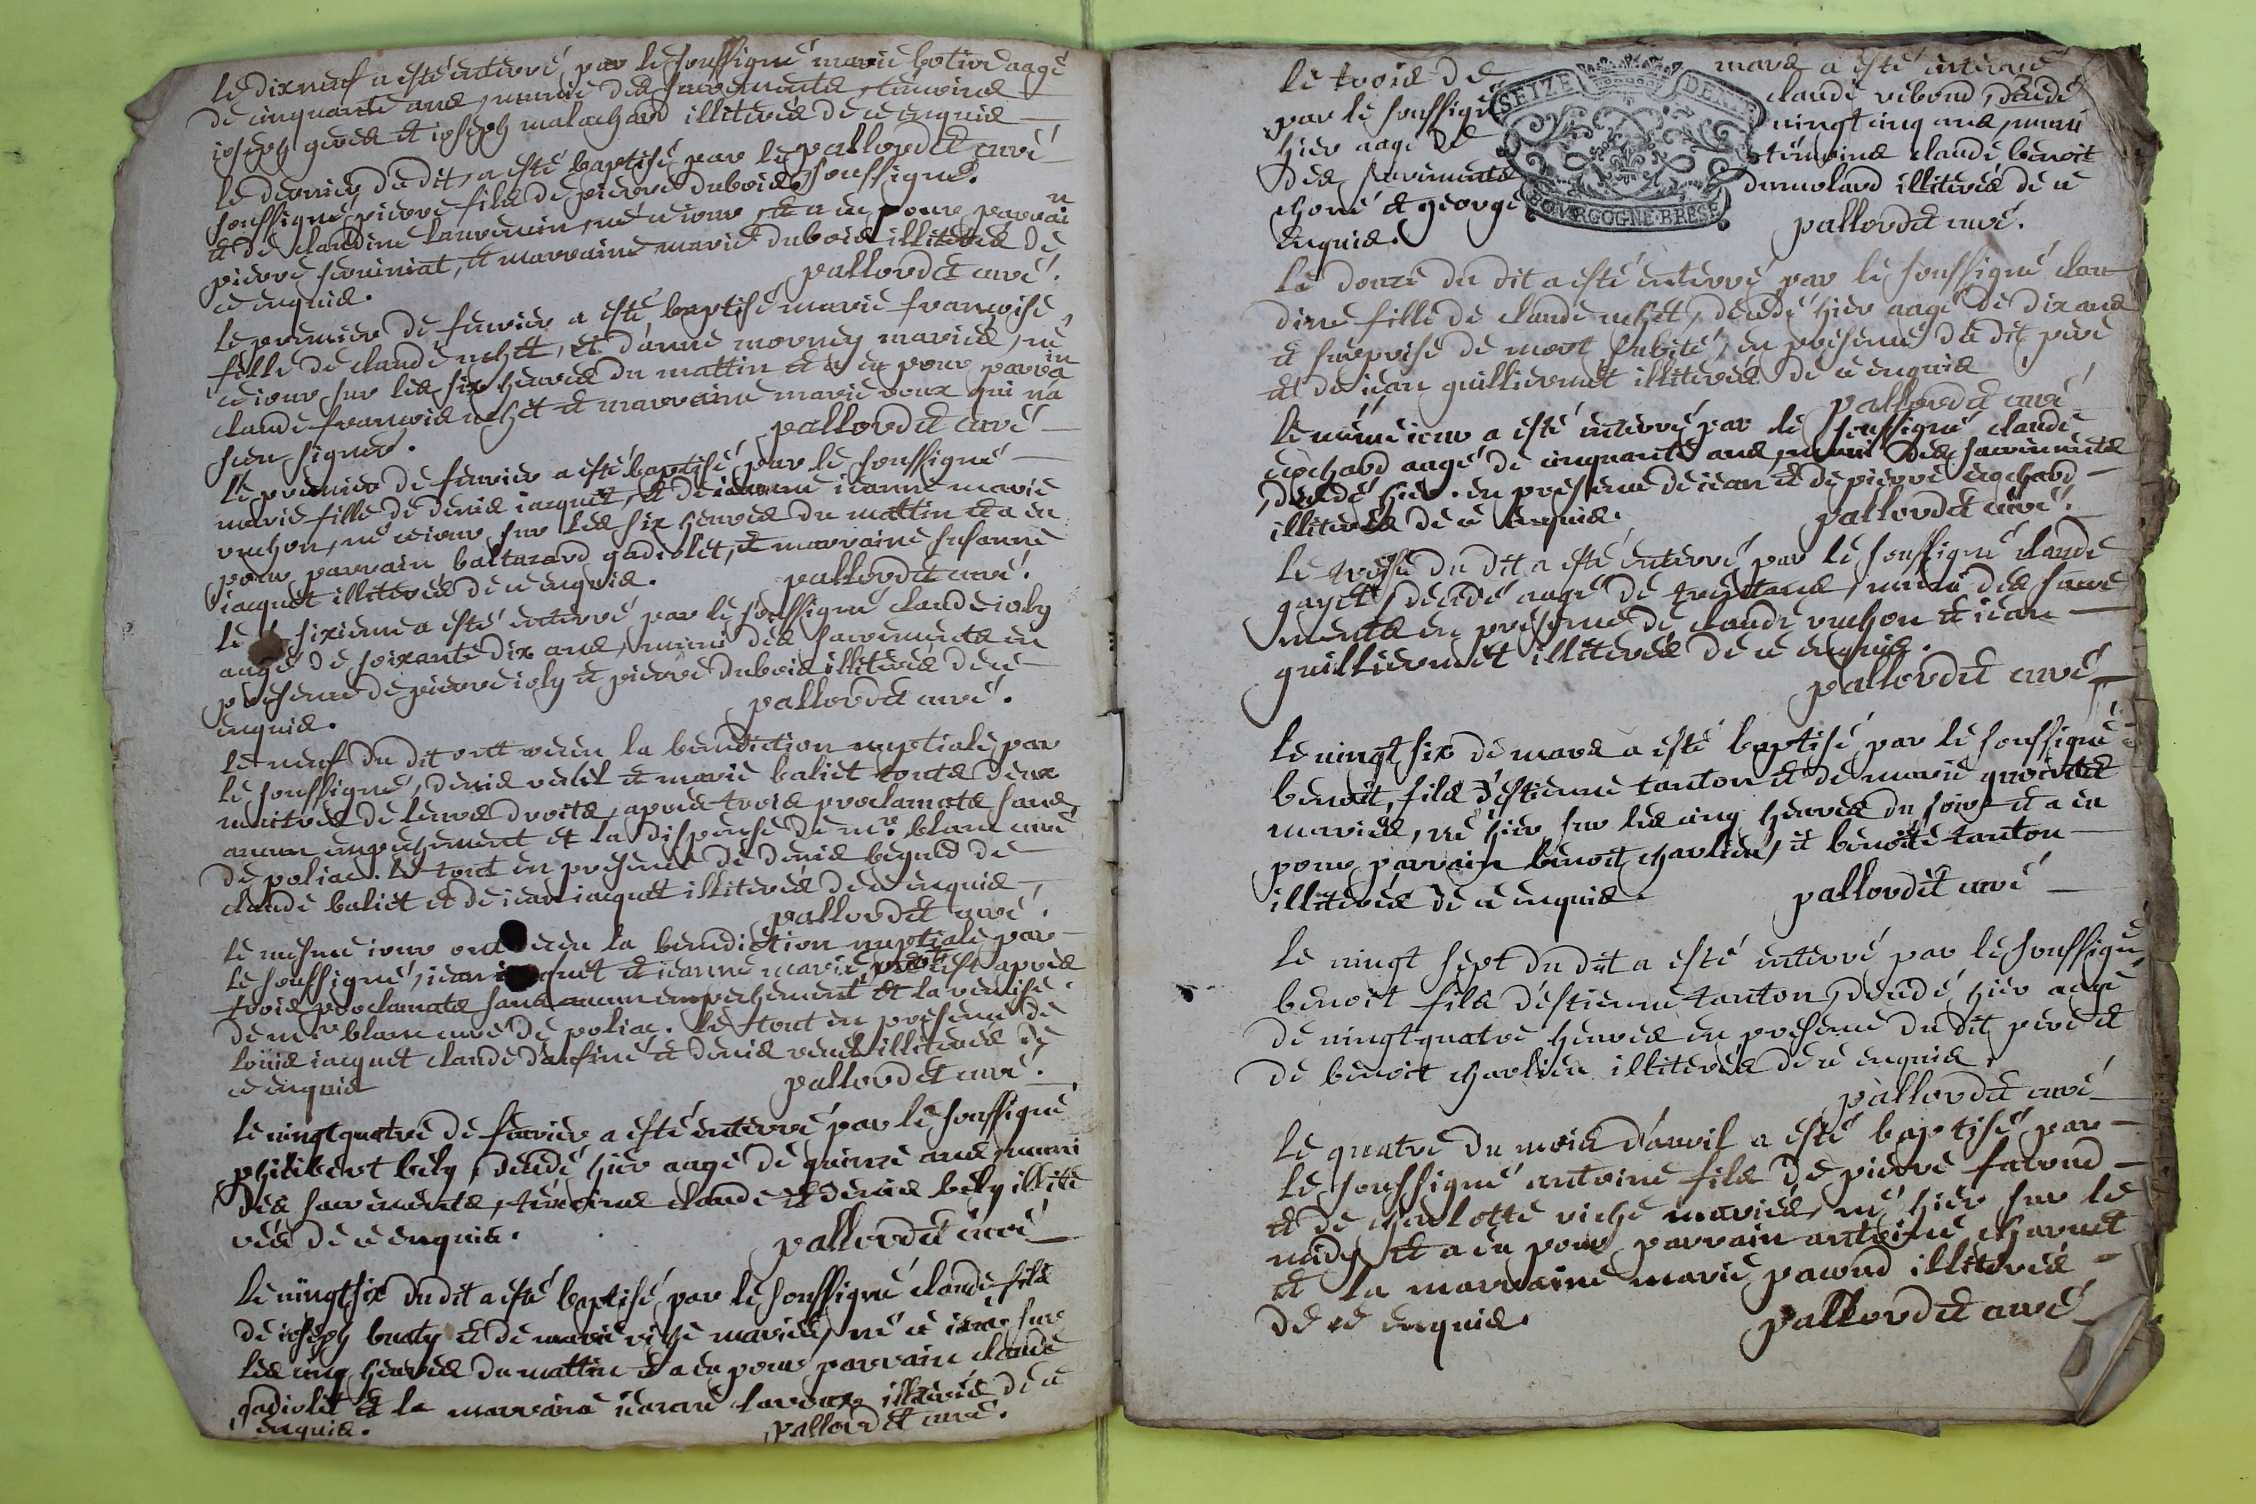 le dixneuf a esté enterré par le soussigné marie botive aagé
de cinquante ans, munie des sacrements, témoins
ioseph gives et ioseph malachard illiterés de ce enquis
pallordet curé
le dernier du dit, a esté baptisé par le
soussigné pierre fils de pierre dubois, soussigné.
et de claudine laurencin, né ce iour, et a eu pour parrain
pierre, et marraine marie dubois illiterés de
ce enquis. pallordet curé.
le premier de fevrier a esté baptisé marie françoise
fille de claude nehet, et d'anne morney mariés, né
ce iour sur les six heures du mattin et a eu pour parrain
claude françois nehet et marraine marie roux qui n'a
sceu signer. pallordet curé
le premier de fevrier a esté baptisé par le soussigné
marie fille de denis iacquet, et de ieanne marie
ruchon, né ce iour sur les six heures du mattin et a eu
pour parrain baltazard gadiolet, et marraine susanne
iacquet illiterés de ce enquis. pallordet curé.
le sixieme a esté enterré par le soussigné claude ioly
aagé de soixante dix ans, muni des sacrements en
presence de pierre ioly et pierre dubois illiterés de ce
enquis. pallordet curé.
le neuf du dit ont receu la benediction nuptiale par
le soussigné, denis verdil et marie baliet touts deux
maitres de leurs droits, apres trois proclamats sans
aucun empechement et la dispense de mr. blanc curé
de poliac. le tout en presence de denis begued de
claude baliet et de iean iacquet illiterés de ce enquis
pallordet curé.
le mesme iour ont receu la benediction nuptiale par
le soussigné, iean iacquet et ieanne marie apres
trois proclamats sans aucun empechement et la remise
de mr blanc curé de poliac. le tout en presence de
loüis iacquet claude daufiné et denis illiterés de
ce enquis pallordet curé.
le vingtquatre de fevrier a esté enterré par le soussigné
philibert bely, decedé hier aagé de quinze ans, muni
des sacrements, témoins claude et denis bely illite
rés de ce enquis. pallordet curé
le vingtsix du dit a esté baptisé par le soussigné claude fils
de ioseph buaty et de marie riche mariés, né ce iour sur
les cinq heures du mattin et a eu pour parrain claude
gadiolet et la marraine ieanne laroux illiterés de ce
enquis. pallordet curé.
le trois de mars a esté enterré
par le soussigné claude rebond, decedé
hier aagé de vingt cinq ans, muni
des sacrements témoins claude benoit
choné et george dumolard illiterés de ce
enquis. pallordet curé.
SEIZE DENIERS
BOURGOGNE·BRESE
le douze du dit a esté enterré par le soussigné clau
dine fille de claude nehet, decedé hier aagé de dix ans
et surprise de mort subite, en presence du dit pere
et de iean guilliermet illiterés de ce enquis
pallordet curé
le méme iour a esté enterré par le soussigné claude
cochard aagé de cinquante ans, muni des sacrements
decedé hier. en presence de iean et de pierre cochard
illiterés de ce enquis. pallordet curé.
le treise du dit a esté enterré par le soussigné claude
gayet, decedé aagé de trente ans, muni des sacre
ments en presence de claude ruchon et iean
guilliermet illiterés de ce enquis.
pallordet curé
le vingt six de mars a esté baptisé par le soussigné
benoit, fils d'estienne tanton et de marie
mariés, né hier sur les cinq heures du soir et a eu
pour parrain benoit charlieu, et benoite tanton
illiterés de ce enquis. pallordet curé
le vingt sept du dit a esté enterré par le soussigné
benoit fils d'estienne tanton, decedé hier aagé
de vingtquatre heures en presence du dit pere et
de benoit charlieu illiterés de ce enquis.
pallordet curé
le quatre du mois d'avril a esté baptisé par
le soussigné antoine fils de pierre favoud
et de charlotte riche mariés, né hier sur le
midy et a eu pour parrain antoine charvet
et la marraine marie pacoud illiterés
de ce enquis. pallordet curé